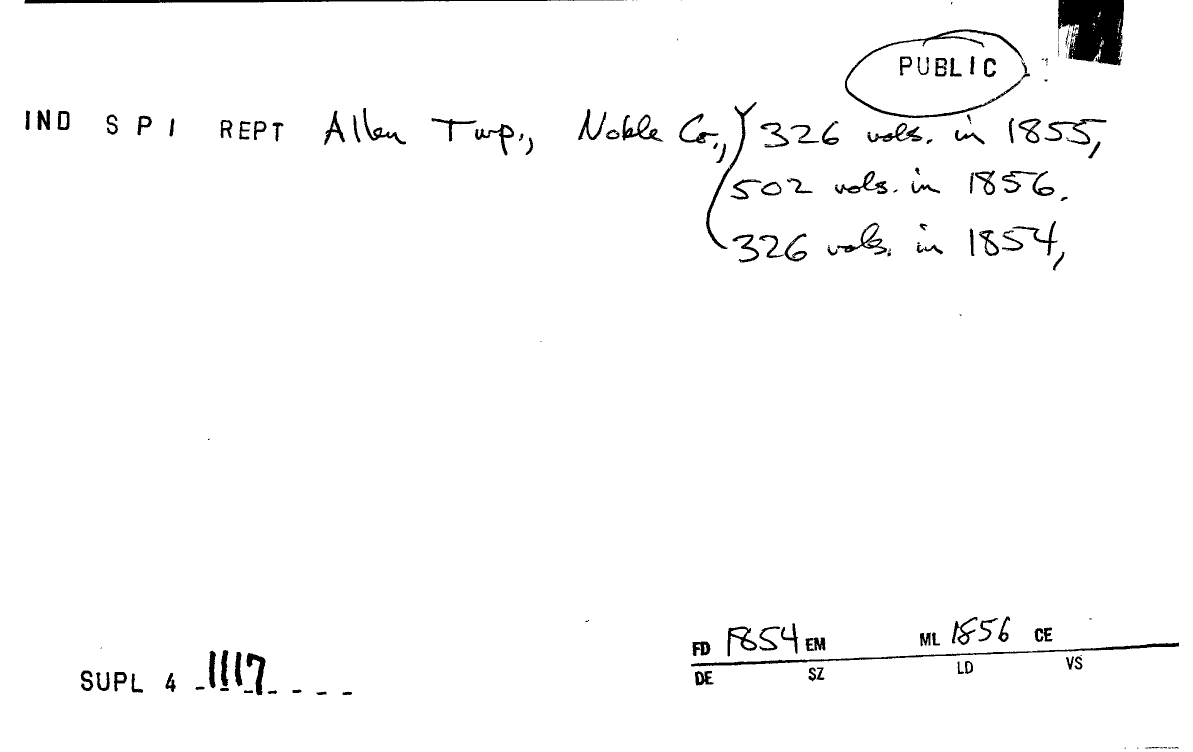 PUBLIC
IND SPI REPT Allen Twp., Noble Co., 326 vols. in 1855,
502 vols. in 1856.
326 vols. in 1854,
FD 1854 EM ML 1856 CE
DE SZ LD VS
SUPL 4 _1117_ _ _ _